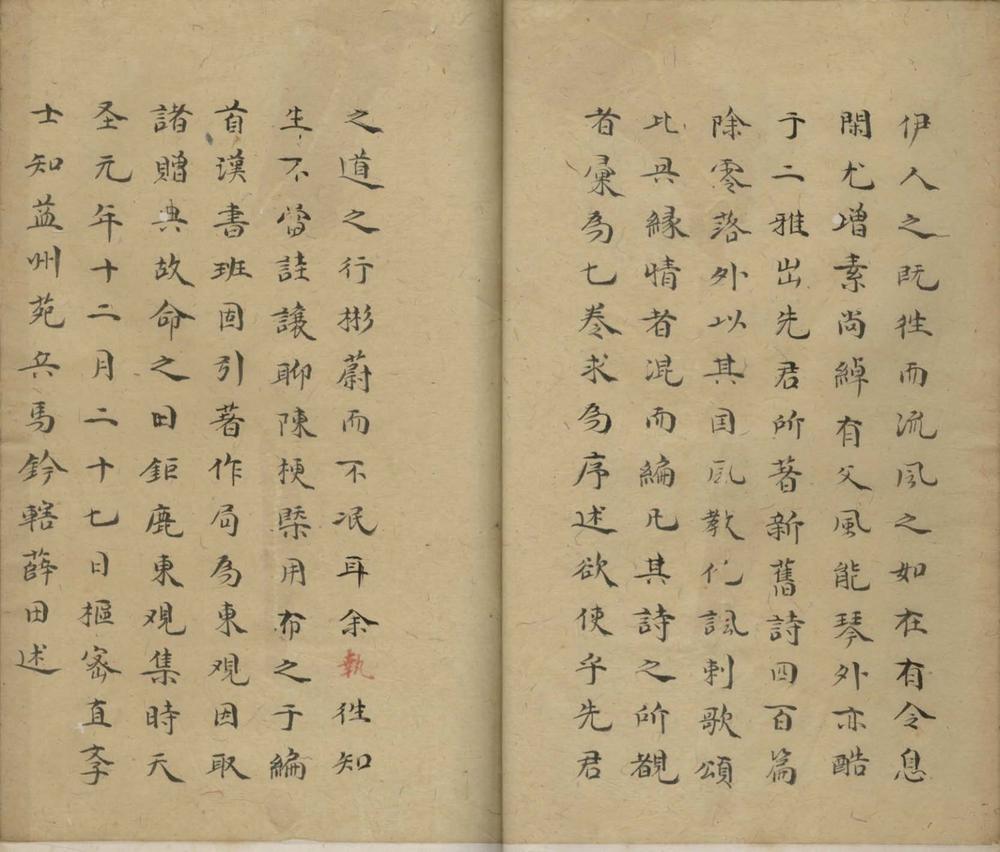 伊人之既徃而流風之如在有令息
閑尤增素尚綽有父風能琴外亦酷
于二雅出先君所著新舊詩四百篇
除零落外以其国風教化諷刺歌頌
比具緣情者混而編凡其詩之所覩
者彙為七卷求為序述欲使乎先君
之道之行彬蔚而不泯耳余執徃知
生不當詿讓聊陳梗槩用布之于編
首漢書班固引著作局為東观因取
諸贈典故命之曰鉅鹿東观集時天
圣元年十二月二十七日樞宻直李
士知益州苑兵馬鈐轄薛田述